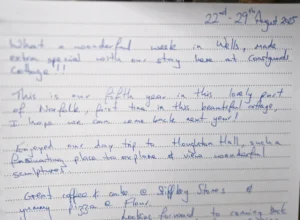 22nd - 29th August 2025
What a wonderful week in Wells, made
extra special with our stay here at Coastguards
Cottage!!
This is our fifth year in this lovely part
of Norfolk, first time in this beautiful cottage,
I hope we can come back next year!
Enjoyed our day trip to Houghton Hall, such a
fascinating place to explore & view wonderful
sculptures.
Great coffee & cake @ Stiffkey Stores &
yummy pizza @ Flour.
Looking forward to coming back